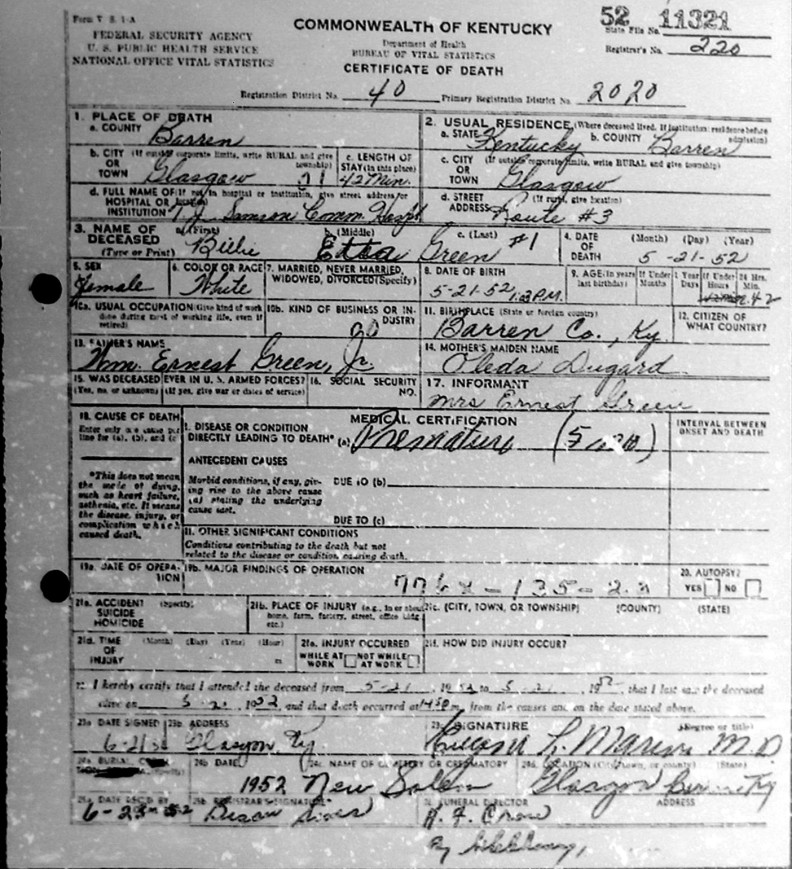 Form V. S. 1-A
FEDERAL SECURITY AGENCY
U. S. PUBLIC HEALTH SERVICE
NATIONAL OFFICE VITAL STATISTICS
COMMONWEALTH OF KENTUCKY
Department of Health
BUREAU OF VITAL STATISTICS
CERTIFICATE OF DEATH
52 11321
State File No.
Registrar's No. 220
Registration District No. 40 Primary Registration District No. 2020
1. PLACE OF DEATH
a. COUNTY Barren
2. USUAL RESIDENCE (Where deceased lived. If institution: residence before admission)
a. STATE Kentucky b. COUNTY Barren
b. CITY (If outside corporate limits, write RURAL and give township)
OR
TOWN Glasgow
c. LENGTH OF
STAY (in this place)
42 Min.
c. CITY (If outside corporate limits, write RURAL and give township)
OR
TOWN Glasgow
d. FULL NAME OF (If not in hospital or institution, give street address or
HOSPITAL OR
INSTITUTION T J Samson Comm. Hospt
d. STREET (If rural, give location)
ADDRESS Route #3
3. NAME OF DECEASED
(Type or Print)
a. (First) b. (Middle) c. (Last)
Billie Etta Green #1
4. DATE OF DEATH
(Month) (Day) (Year)
5-21-52
5. SEX
Female
6. COLOR OR RACE
White
7. MARRIED, NEVER MARRIED,
WIDOWED, DIVORCED (Specify)
8. DATE OF BIRTH
5-21-52
9. AGE (In years last birthday)
If Under 1 Year
Months Days
If Under 24 Hrs.
Hours Min.
42
10a. USUAL OCCUPATION (Give kind of work
done during most of working life, even if
retired)
10b. KIND OF BUSINESS OR INDUSTRY
11. BIRTHPLACE (State or foreign country)
Barren Co., Ky.
12. CITIZEN OF
WHAT COUNTRY?
13. FATHER'S NAME
Wm. Ernest Green, Jr.
14. MOTHER'S MAIDEN NAME
Oleda Dugard
15. WAS DECEASED EVER IN U. S. ARMED FORCES?
(Yes, no, or unknown) (If yes, give war or dates of service)
16. SOCIAL SECURITY
NO.
17. INFORMANT
Mrs Ernest Green
18. CAUSE OF DEATH
Enter only one cause per
line for (a), (b), and (c)
MEDICAL CERTIFICATION
INTERVAL BETWEEN
ONSET AND DEATH
I. DISEASE OR CONDITION
DIRECTLY LEADING TO DEATH* (a) Premature
*This does not mean
the mode of dying,
such as heart failure,
asthenia, etc. It means
the disease, injury, or
complication which
caused death.
ANTECEDENT CAUSES
Morbid conditions, if any, giving
rise to the above cause
(a) stating the underlying
cause last.
DUE TO (b)
DUE TO (c)
II. OTHER SIGNIFICANT CONDITIONS
Conditions contributing to the death but not
related to the disease or condition causing death.
19a. DATE OF OPERATION
19b. MAJOR FINDINGS OF OPERATION
20. AUTOPSY?
YES NO
21a. ACCIDENT (Specify)
SUICIDE
HOMICIDE
21b. PLACE OF INJURY (e.g., in or about
home, farm, factory, street, office bldg.
etc.)
21c. (CITY, TOWN, OR TOWNSHIP) (COUNTY) (STATE)
21d. TIME (Month) (Day) (Year) (Hour)
OF
INJURY m
21e. INJURY OCCURRED
WHILE AT WORK NOT WHILE AT WORK
21f. HOW DID INJURY OCCUR?
22. I hereby certify that I attended the deceased from 5-21 1952 to 5-21 1952, that I last saw the deceased
alive on 5-21 1952, and that death occurred at m., from the causes and on the date stated above.
23a. DATE SIGNED
23b. ADDRESS
Glasgow, Ky
23c. SIGNATURE (Degree or title)
M.D
24b. DATE
1952
24c. NAME OF CEMETERY OR CREMATORY
New Salem
24d. LOCATION (City, town, or county) (State)
Glasgow Ky
25a. DATE REC'D BY
6-23-52
25b. REGISTRAR'S SIGNATURE
FUNERAL DIRECTOR
ADDRESS